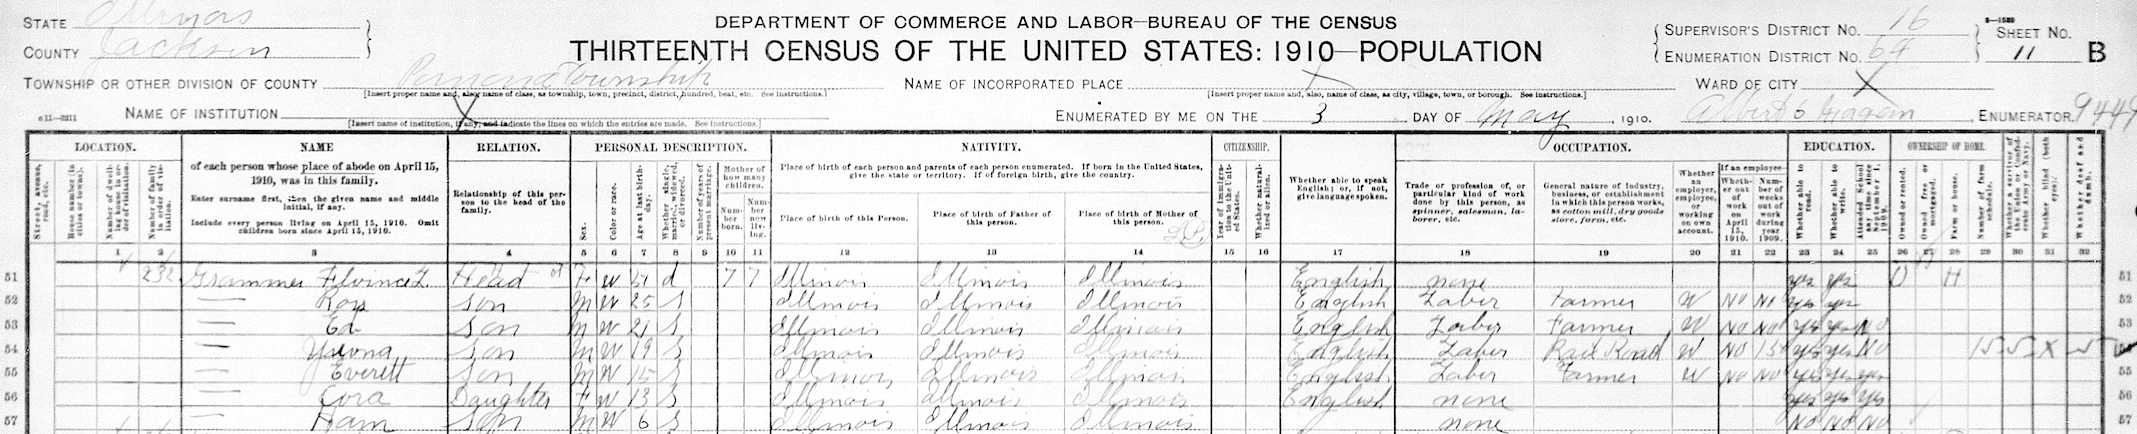 STATE Illinois
COUNTY Jackson
DEPARTMENT OF COMMERCE AND LABOR—BUREAU OF THE CENSUS
THIRTEENTH CENSUS OF THE UNITED STATES: 1910—POPULATION
SUPERVISOR'S DISTRICT NO. 16
ENUMERATION DISTRICT NO. 64
SHEET NO. 11 B
TOWNSHIP OR OTHER DIVISION OF COUNTY Pomona Township
[Insert proper name and, also, name of class, as township, town, precinct, district, hundred, beat, etc. See instructions.]
NAME OF INCORPORATED PLACE X
[Insert proper name and, also, name of class, as city, village, town, or borough. See instructions.]
WARD OF CITY X
NAME OF INSTITUTION X
[Insert name of institution, if any, and indicate the lines on which the entries are made. See instructions.]
ENUMERATED BY ME ON THE 3 DAY OF May, 1910. Albert ENUMERATOR. 9449
LOCATION. NAME RELATION. PERSONAL DESCRIPTION. NATIVITY. CITIZENSHIP. OCCUPATION. EDUCATION. OWNERSHIP OF HOME.
Street, avenue, road, etc.
House number (in cities or towns).
Number of dwelling house in order of visitation.
Number of family in order of visitation.
of each person whose place of abode on April 15, 1910, was in this family.
Enter surname first, then the given name and middle initial, if any.
Include every person living on April 15, 1910. Omit children born since April 15, 1910.
Relationship of this person to the head of the family.
Sex.
Color or race.
Age at last birthday.
Whether single, married, widowed, or divorced.
Number of years of present marriage.
Mother of how many children.
Number born.
Number now living.
Place of birth of each person and parents of each person enumerated. If born in the United States, give the state or territory. If of foreign birth, give the country.
Place of birth of this Person.
Place of birth of Father of this person.
Place of birth of Mother of this person.
Year of immigration to the United States.
Whether naturalized or alien.
Whether able to speak English; or, if not, give language spoken.
Trade or profession of, or particular kind of work done by this person, as spinner, salesman, laborer, etc.
General nature of industry, business, or establishment in which this person works, as cotton mill, dry goods store, farm, etc.
Whether an employer, employee, or working on own account.
If an employee—
Whether out of work on April 15, 1910.
Number of weeks out of work during year 1909.
Whether able to read.
Whether able to write.
Attended school any time since September 1, 1909.
Owned or rented.
Owned free or mortgaged.
Farm or house.
Number of farm schedule.
Whether a survivor of the Union or Confederate Army or Navy.
Whether blind (both eyes).
Whether deaf and dumb.
1 2 3 4 5 6 7 8 9 10 11 12 13 14 15 16 17 18 19 20 21 22 23 24 25 26 27 28 29 30 31 32
51 232 Grammer Head F W 51 d 7 7 Illinois Illinois Illinois English none yes yes O H 51
52 — Roy Son M W 25 S Illinois Illinois Illinois English Laber Farmer W No No yes yes 52
53 — Ed Son M W 21 S Illinois Illinois Illinois English Laber Farmer W No No yes yes No 53
54 — Son M W 19 S Illinois Illinois Illinois English Laber Rail Road W No 15 yes yes No X
55 — Everett Son M W 15 S Illinois Illinois Illinois English Laber Farmer W No No yes yes yes 55
56 Cora Daughter F W 13 S Illinois Illinois Illinois English none yes yes yes 56
57 — Ham Son M W 6 S Illinois Illinois Illinois none No No No 57